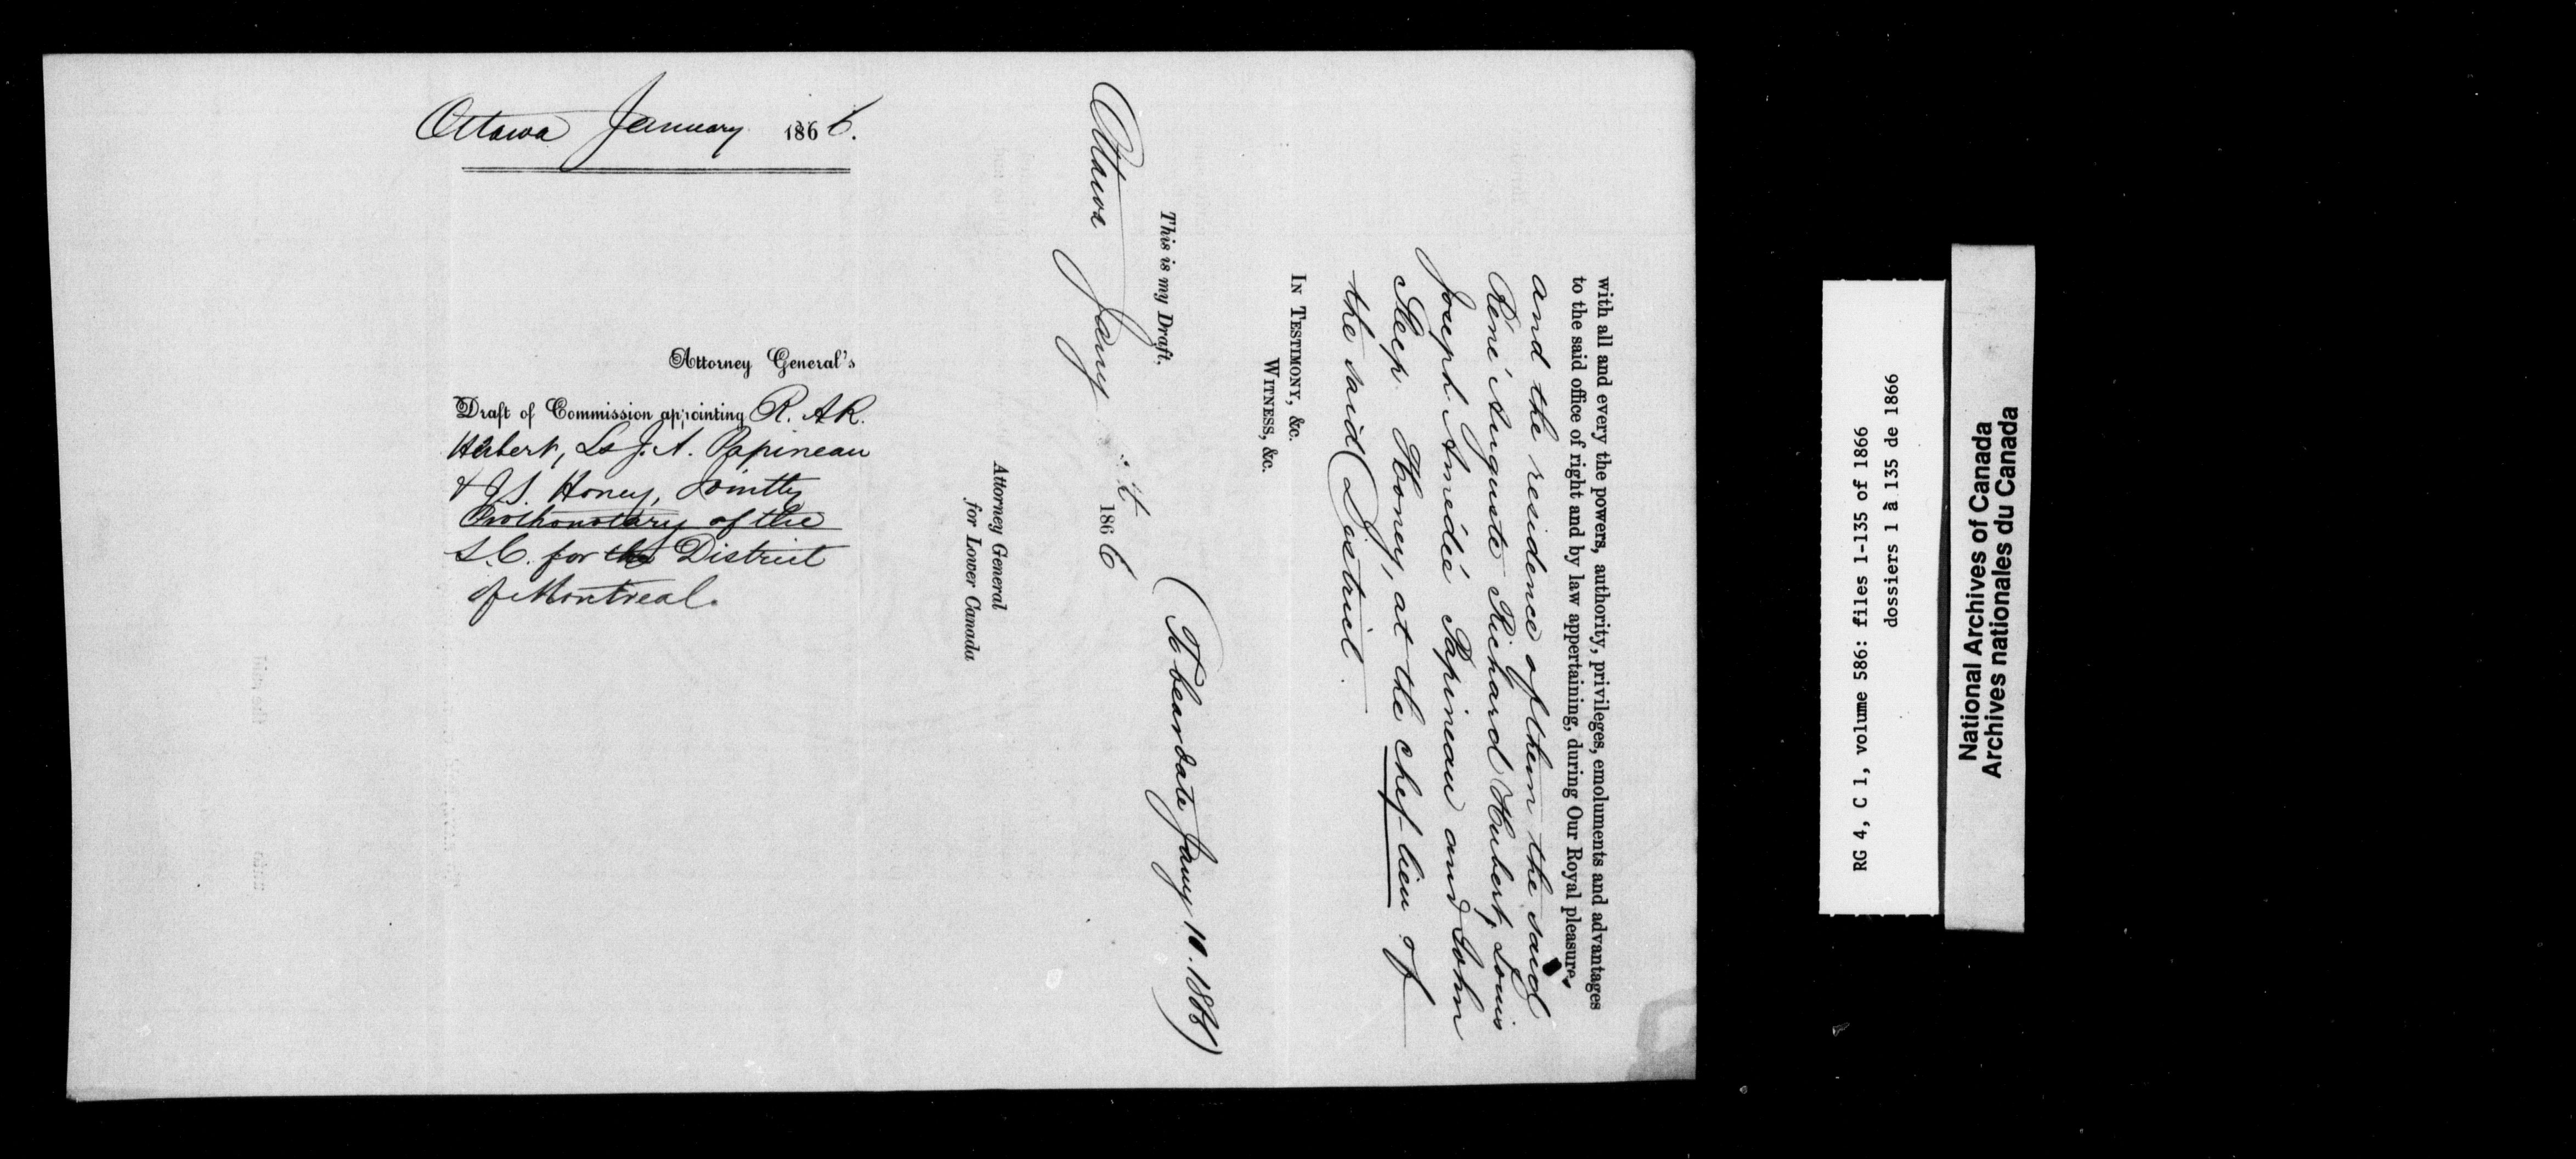 Ottawa January 1866.
Attorney General's
Draft of Commission appointing R. A R.
Hubert, Ls J. A. Papineau
& J. S. Honey, Jointly
Prothonotary of the
S. C. for the District
of Montreal.
with all and every the powers, authority, privileges, emoluments and advantages
to the said office of right and by law appertaining, during Our Royal pleasure,
and the residence of them the said
René Auguste Richard Hubert, Louis
Joseph Amédée Papineau and John
Sleep Honey, at the chef-lieu of
the said District.
IN TESTIMONY, &c.
WITNESS, &c.
This is my Draft,
(To bear date Jany 10. 1866)
Ottawa Jany 1866
Attorney General
for Lower Canada
RG 4, C 1, volume 586: files 1-135 of 1866
dossiers 1 à 135 de 1866
National Archives of Canada
Archives nationales du Canada